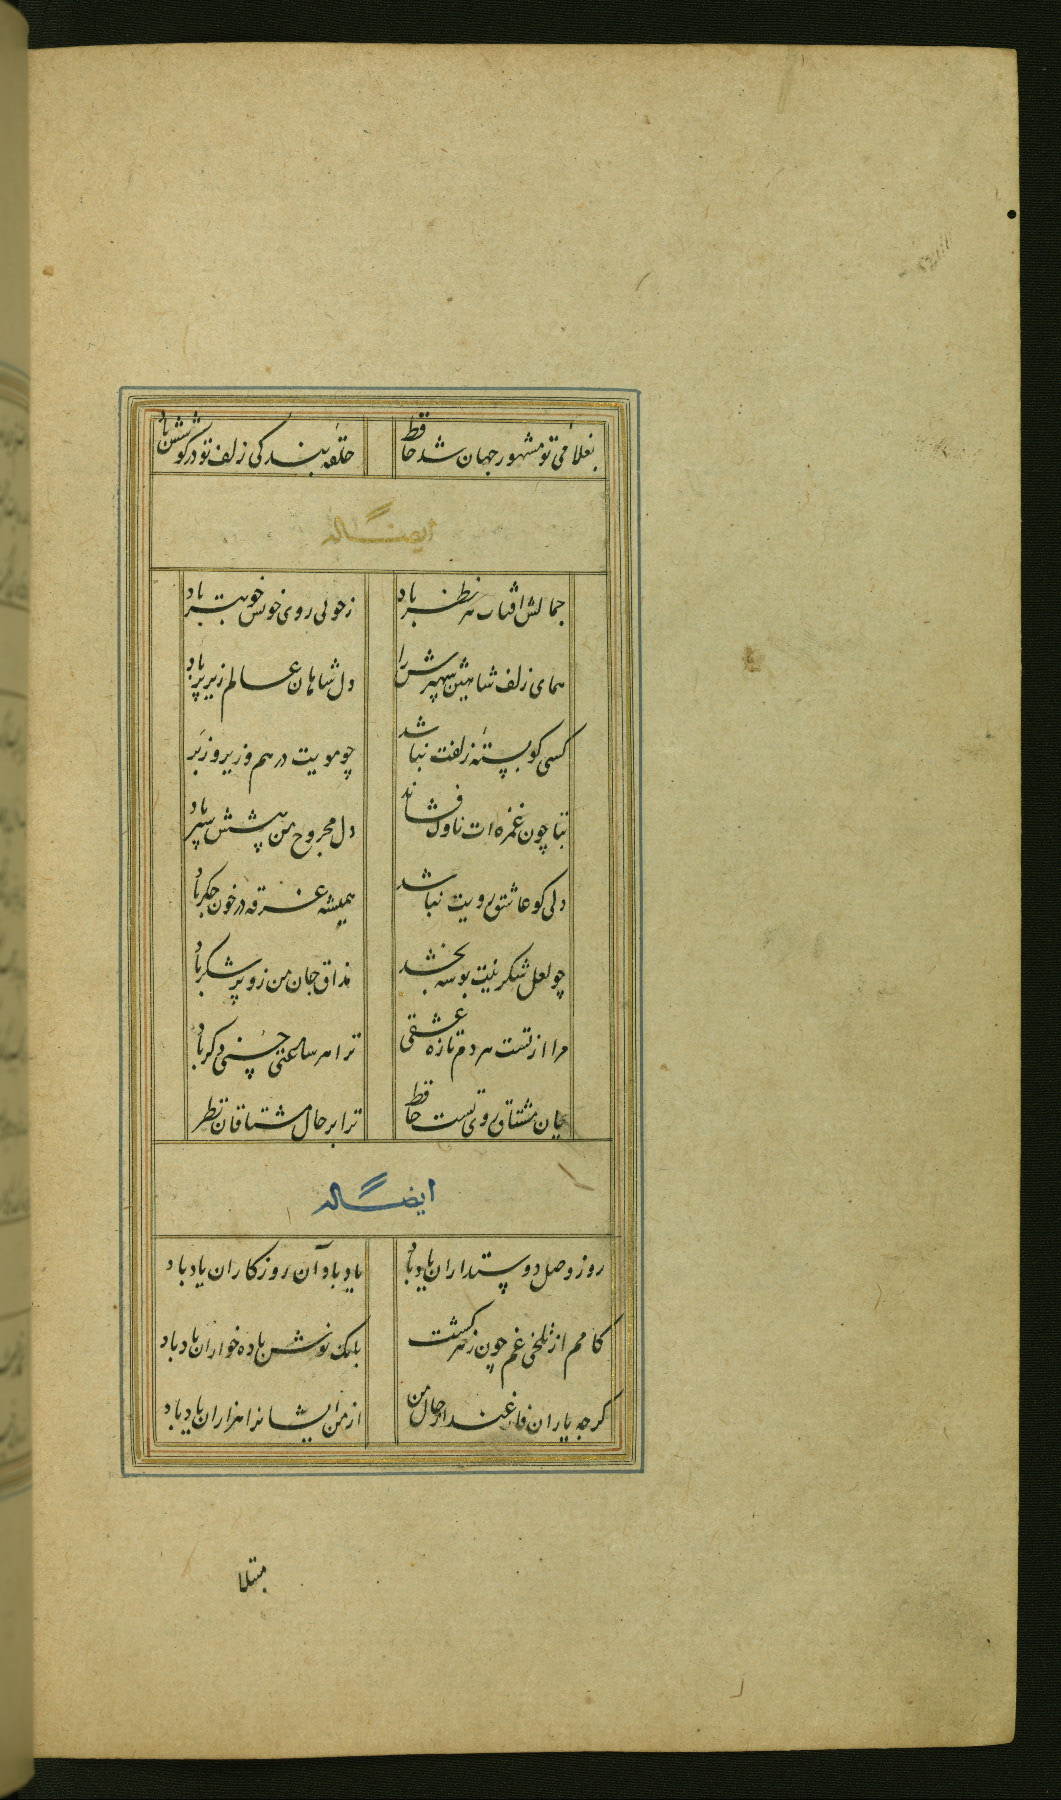 بغلامی تو مشهور جهان شد حافظ حلقه بندکی زلف تو در کوشش باد
ایضاً له
جمالش افتاب هر نظر باد زخوبی روی خوبش خوبتر باد
همای زلف شاهین شهپرش را دل شاهان عالم زیر پر باد
کسی کو بسته زلفت نباشد چو مویت در هم و زیر و زبر
بتا چون غمزه ات ناوک فشاند دل مجروح من پیشش سپر باد
دلی کو عاشق رویت نباشد همیشه غرقه در خون جکر باد
چو لعل شکرینت بوسه بخشد مذاق جان من زو پر شکر باد
مرا از تست هر دم تازه عشقی ترا هر ساعتی حسنی دکر باد
بجان مشتاق روی تست حافظ ترا بر حال مشتاقان نظر
ایضاً له
روز وصل دوستداران یاد باد یاد باد آن روزکاران یاد باد
کامم از تلخی غم چون زهر کشت بانک نوش باده خواران یاد باد
کرچه یاران فارغند از حال من از من ایشانرا هزاران یاد باد
مبتلا